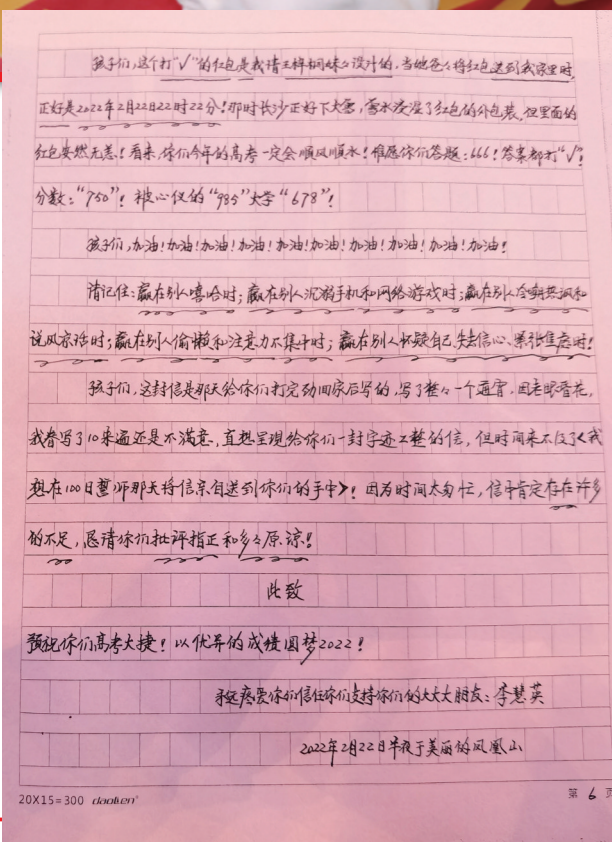 孩子们,这个打“√”的红包是我请王梓桐妹々设计的.当她爸々将红包送到我家里时,
正好是2022年2月22日22时22分!那时长沙正好下大雪,雪水浸湿了红包的外包装,但里面的
红包安然无恙!看来,你们今年的高考一定会顺风顺水!惟愿你们答题:666!答案都打“√”!
分数:“750”!被心仪的“985”大学“678”!
孩子们,加油!加油!加油!加油!加油!加油!加油!加油!加油!加油!
请记住:赢在别人嘻哈时;赢在别人沉溺手机和网络游戏时;赢在别人冷嘲热讽和
说风凉话时;赢在别人偷懒和注意力不集中时;赢在别人怀疑自己,失去信心、紧张焦虑时!
孩子们,这封信是那天给你们打完劲回家后写的,写了整々一个通宵,因老眼昏花,
我眷写了10来遍还是不满意,直想呈现给你们一封字迹工整的信,但时间来不及了<我
想在100日誓师那天将信亲自送到你们的手中>!因为时间太匆忙,信中肯定存在许多
的不足,恳请你们批评指正和多々原谅!
此致
预祝你们高考大捷!以优异的成绩圆梦2022!
永远疼爱你们信任你们支持你们的大大大朋友:李慧英
2022年2月22日半夜于美丽的凤凰山
20X15=300 daolien®
第 6 页